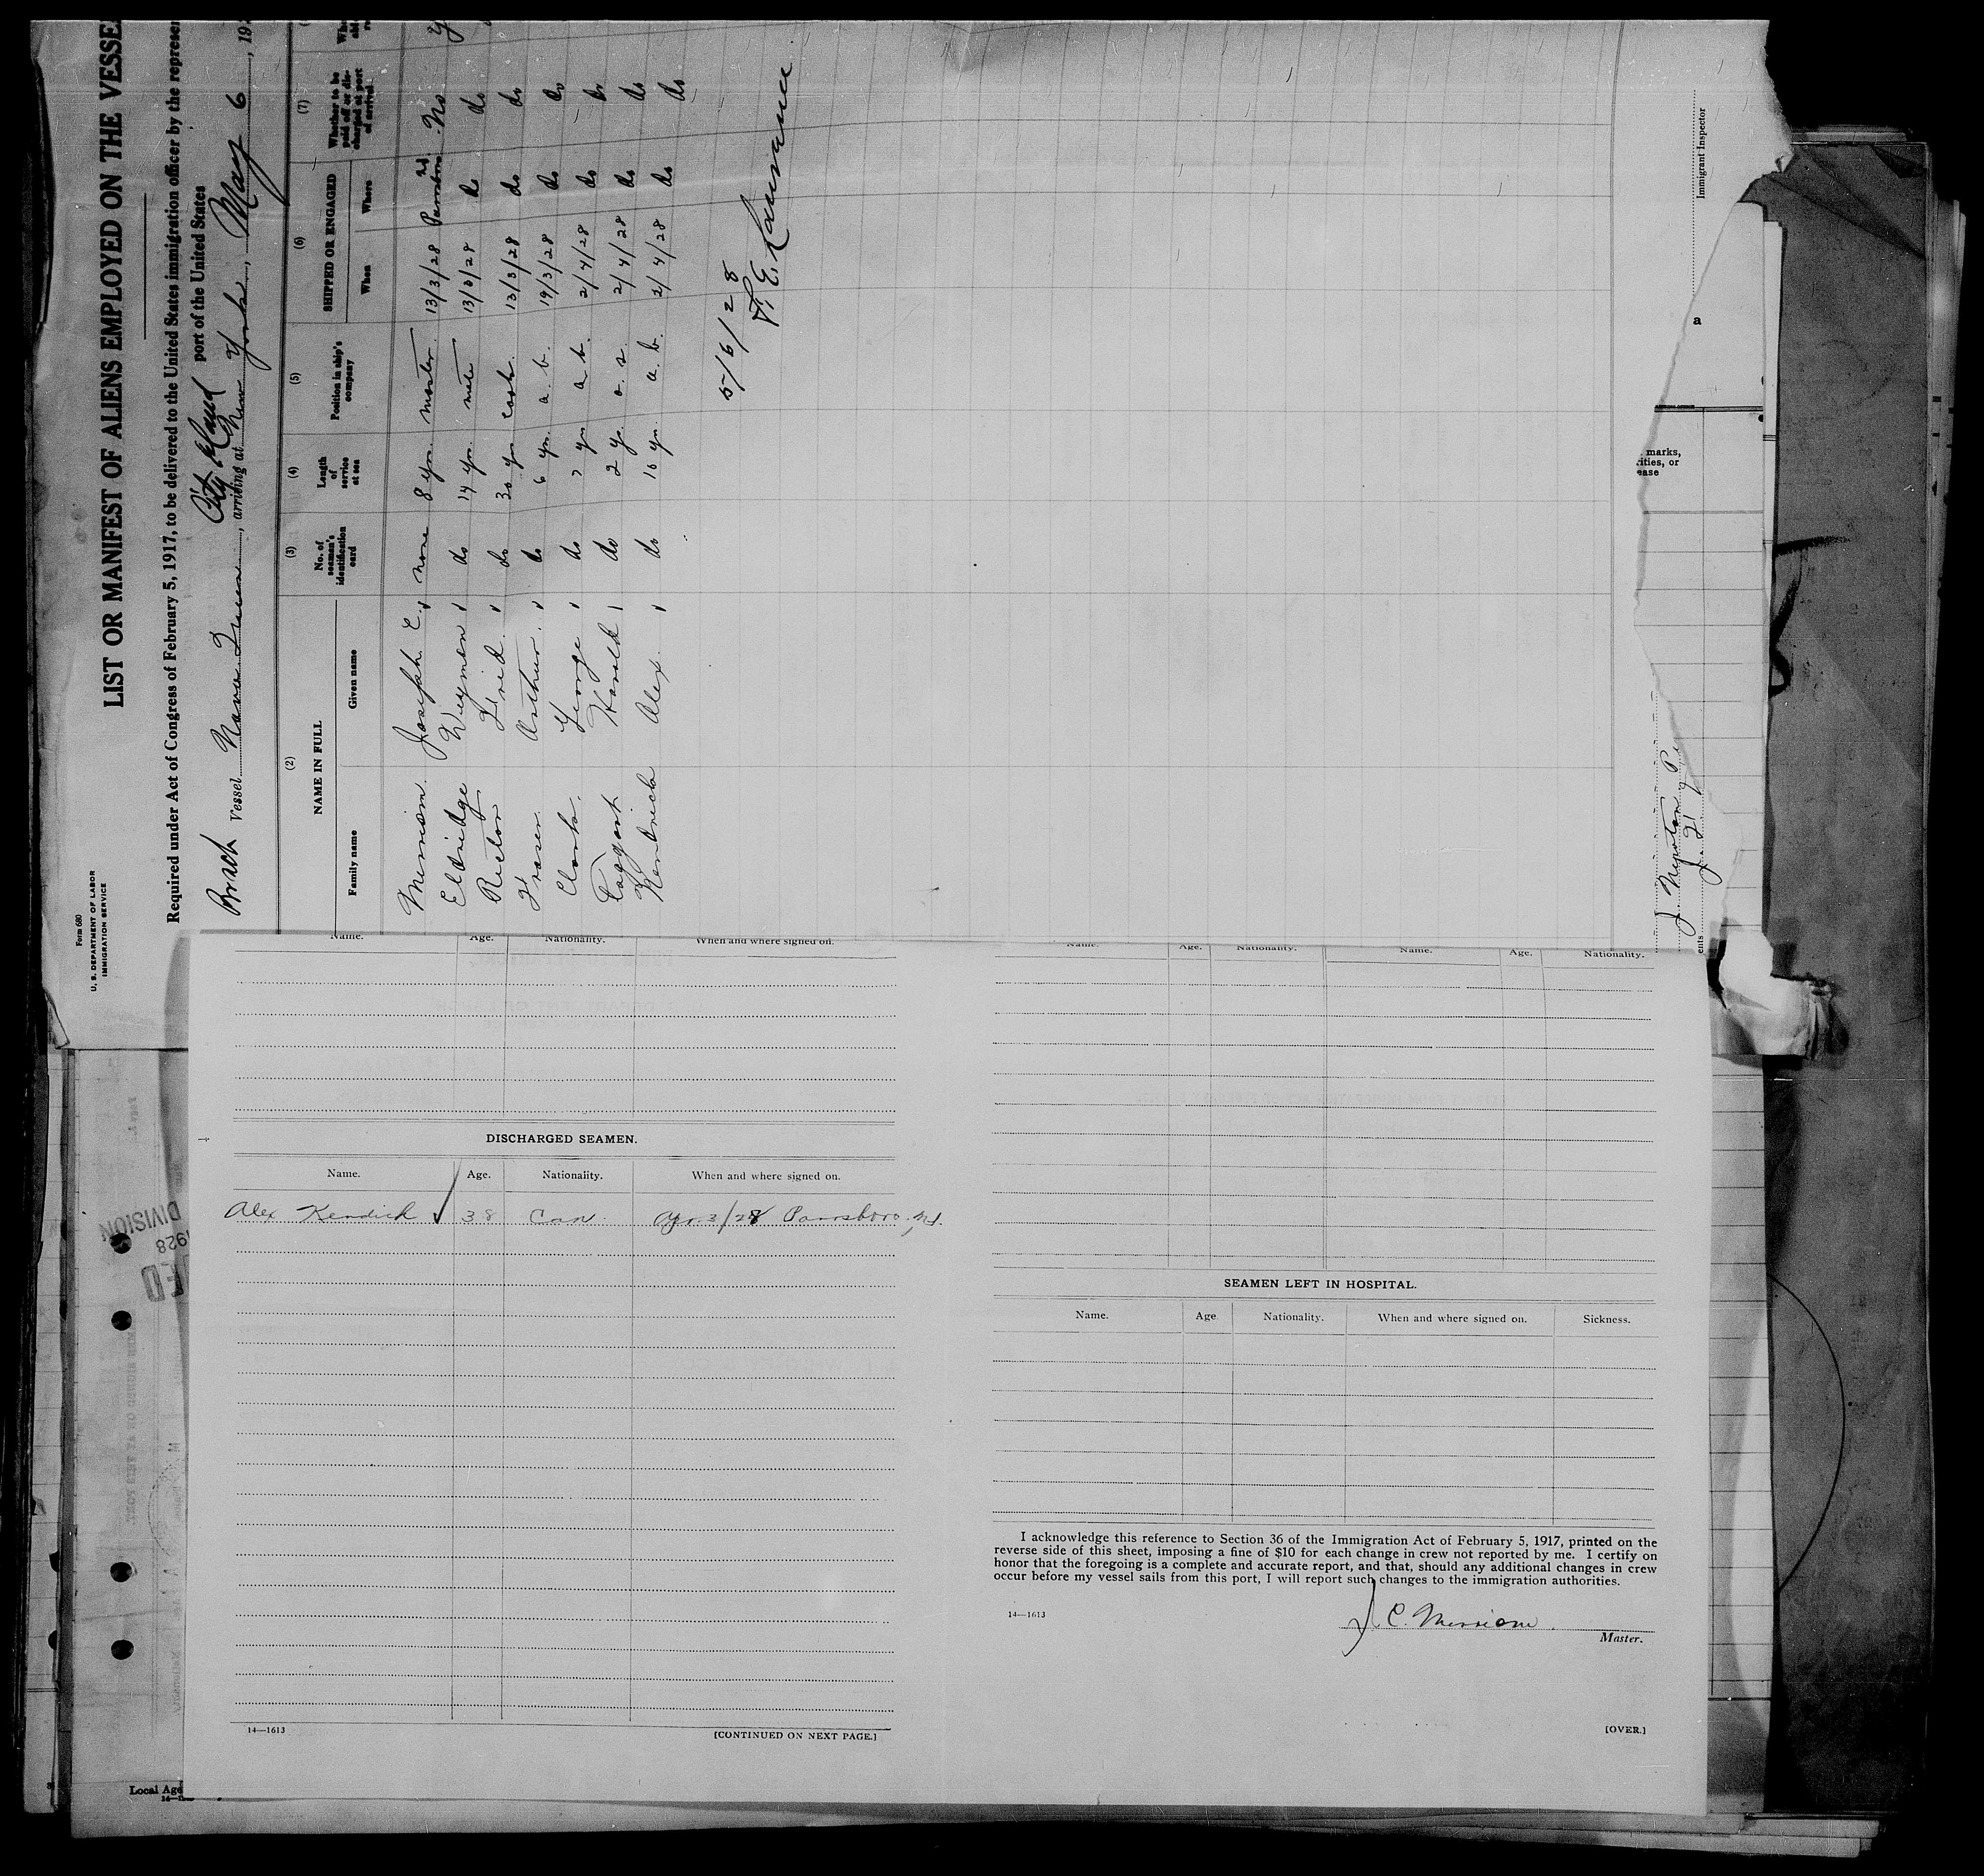 Form 680
U. S. DEPARTMENT OF LABOR
IMMIGRATION SERVICE
LIST OR MANIFEST OF ALIENS EMPLOYED ON THE VESSE
Required under Act of Congress of February 5, 1917, to be delivered to the United States immigration officer by the represen
port of the United States
City Island
Vessel Nova Queen, arriving at New York, May 6, 19
(2) (3) (4) (5) (6) (7)
NAME IN FULL No. of seaman's identification card Length of service at sea Position in ship's company SHIPPED OR ENGAGED Whether to be paid off or discharged at port of arrival
Family name Given name When Where
Merriam Joseph C. none 8 yrs. master 13/3/28 Parrsboro No
Eldridge Weymon do 14 yrs. mate 13/3/28 do do
Rector Fred do 30 yrs cook 13/3/28 do do
Fraser Arthur do 6 yrs. a. b. 19/3/28 do do
Clark George do 7 yrs a b. 2/4/28 do do
Taggart Harold do 2 yr. o. s. 2/4/28 do do
Kendrick Alex do 10 yr. a. b. 2/4/28 do do
5/6/28
Immigrant Inspector
a
marks,
rities, or
ease
ents
Name. Age. Nationality. When and where signed on.
Name. Age. Nationality. Name. Age. Nationality.
DISCHARGED SEAMEN.
Name. Age. Nationality. When and where signed on.
Alex Kendick 38 Can. Apr. 2/28 Parrsboro N.S.
SEAMEN LEFT IN HOSPITAL.
Name. Age Nationality. When and where signed on. Sickness.
I acknowledge this reference to Section 36 of the Immigration Act of February 5, 1917, printed on the
reverse side of this sheet, imposing a fine of $10 for each change in crew not reported by me. I certify on
honor that the foregoing is a complete and accurate report, and that, should any additional changes in crew
occur before my vessel sails from this port, I will report such changes to the immigration authorities.
14—1613
J. C. Merriam
Master.
14—1613
[CONTINUED ON NEXT PAGE.]
[OVER.]
DIVISION
1928
Local Age